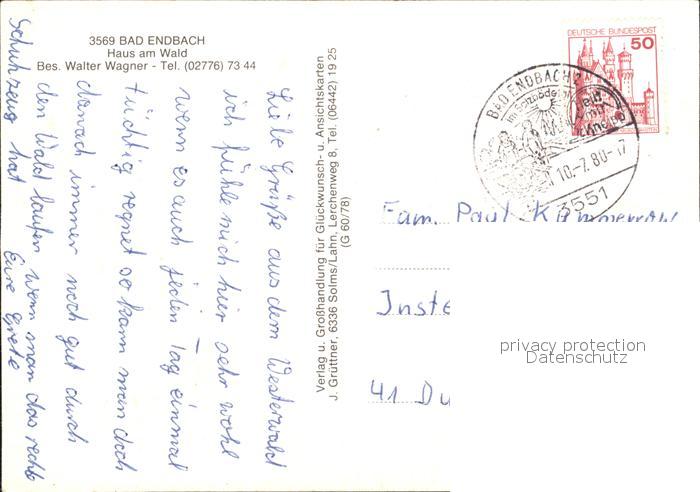 3569 BAD ENDBACH
Haus am Wald
Bes. Walter Wagner - Tel. (02776) 73 44
Liebe Grüße aus dem Westerwald
ich fühle mich hier sehr wohl
wenn es auch jeden Tag einmal
tüchtig regnet so kann man doch
danach immer noch gut durch
den Wald laufen wenn man das rechte
Schuhzeug hat
Eure Grete
Verlag u. Großhandlung für Glückwunsch- u. Ansichtskarten
J. Grüttner, 6336 Solms/Lahn, Lerchenweg 8, Tel. (06442) 19 25
(G 60/78)
DEUTSCHE BUNDESPOST
50
BAD ENDBACH
10.-7.80-17
3551
Fam. Paul Kämmerow
Inste
41 Du
privacy protection
Datenschutz